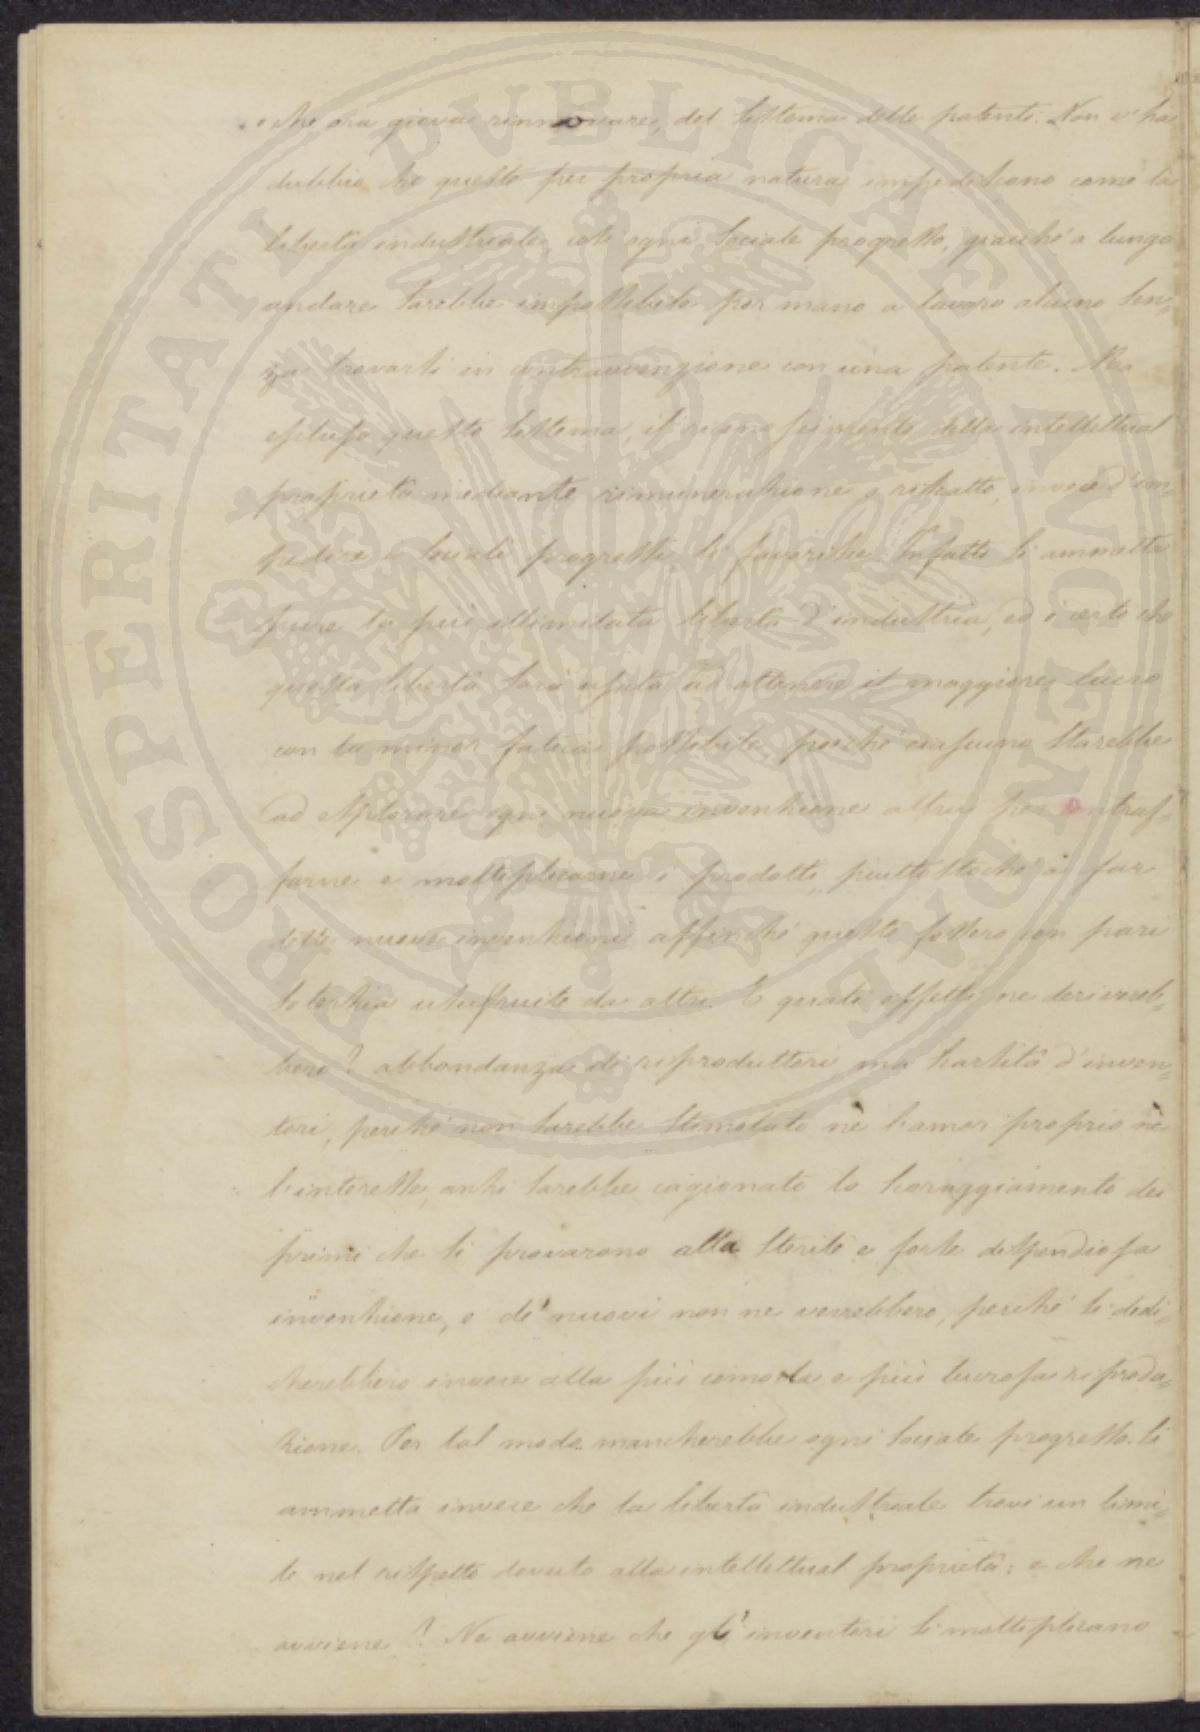 che ora giova rinnovare, del sistema delle patenti. Non v'ha
dubbio che queste per propria natura impediscono come la
libertà industriale, così ogni sociale progresso, giacché a lungo
andare sarebbe impossibile por mano a lavoro alcuno sen=
za trovarsi in contravvenzione con una patente. Ma
escluso questo sistema, il della intellettual
proprietà mediante rimunerazione o riscatto, invece d'im=
pedire i sociali progressi li favorisce. Infatti si ammetta
pure la più illimitata libertà d'industria, ed è certo che
questa libertà sarà usata ad ottenere il maggiore lucro
con la minor fatica possibile, poiché ciascuno starebbe
ad esplorare ogni nuova invenzione altrui per contraf=
farne e moltiplicarne i prodotti, piuttostoché a far
delle nuove invenzioni affinché queste fossero con pari
solerzia usufruite da altri. E quali effetti ne derivereb=
bero? abbondanza di riproduttori ma scarsità d'inven=
tori, perché non sarebbe stimolato nè l'amor proprio nè
l'interesse, anzi sarebbe cagionato lo scoraggiamento dei
primi che si provarono alla sterile e forse dispendiosa
invenzione, e de' nuovi non ne verrebbero, perché si dedi=
cherebbero invece alla più comoda e più lucrosa riprodu=
zione. Per tal modo mancherebbe ogni sociale progresso. Si
ammetta invece che la libertà industriale trovi un limi=
te nel rispetto dovuto alla intellettual proprietà; e che ne
avviene? Ne avviene che gl'inventori si moltiplicano
PROSPERITATI PVBLICAE AVGENDAE